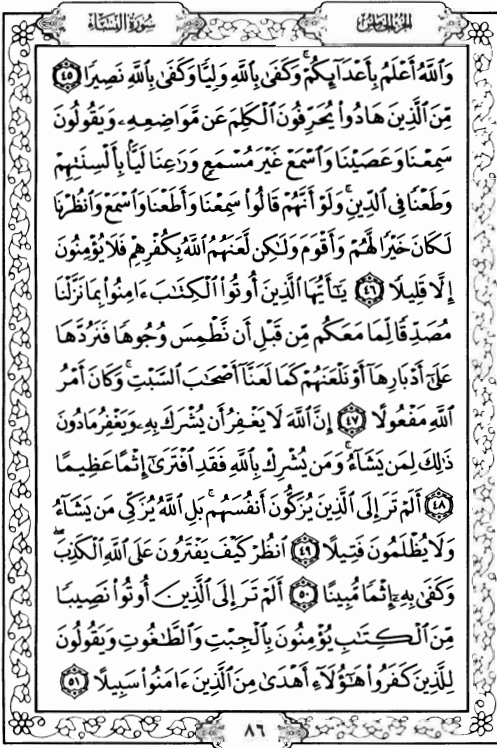 سُورَةُ النِّسَاءِ
الجُزْءُ الخَامِسُ
وَٱللَّهُ أَعْلَمُ بِأَعْدَآئِكُمْۚ وَكَفَىٰ بِٱللَّهِ وَلِيًّا وَكَفَىٰ بِٱللَّهِ نَصِيرًا ٤٥
مِّنَ ٱلَّذِينَ هَادُوا۟ يُحَرِّفُونَ ٱلْكَلِمَ عَن مَّوَاضِعِهِۦ وَيَقُولُونَ
سَمِعْنَا وَعَصَيْنَا وَٱسْمَعْ غَيْرَ مُسْمَعٍ وَرَٰعِنَا لَيًّۢا بِأَلْسِنَتِهِمْ
وَطَعْنًا فِى ٱلدِّينِۚ وَلَوْ أَنَّهُمْ قَالُوا۟ سَمِعْنَا وَأَطَعْنَا وَٱسْمَعْ وَٱنظُرْنَا
لَكَانَ خَيْرًا لَّهُمْ وَأَقْوَمَ وَلَٰكِن لَّعَنَهُمُ ٱللَّهُ بِكُفْرِهِمْ فَلَا يُؤْمِنُونَ
إِلَّا قَلِيلًا ٤٦ يَٰٓأَيُّهَا ٱلَّذِينَ أُوتُوا۟ ٱلْكِتَٰبَ ءَامِنُوا۟ بِمَا نَزَّلْنَا
مُصَدِّقًا لِّمَا مَعَكُم مِّن قَبْلِ أَن نَّطْمِسَ وُجُوهًا فَنَرُدَّهَا
عَلَىٰٓ أَدْبَارِهَآ أَوْ نَلْعَنَهُمْ كَمَا لَعَنَّآ أَصْحَٰبَ ٱلسَّبْتِۚ وَكَانَ أَمْرُ
ٱللَّهِ مَفْعُولًا ٤٧ إِنَّ ٱللَّهَ لَا يَغْفِرُ أَن يُشْرَكَ بِهِۦ وَيَغْفِرُ مَا دُونَ
ذَٰلِكَ لِمَن يَشَآءُۚ وَمَن يُشْرِكْ بِٱللَّهِ فَقَدِ ٱفْتَرَىٰٓ إِثْمًا عَظِيمًا
٤٨ أَلَمْ تَرَ إِلَى ٱلَّذِينَ يُزَكُّونَ أَنفُسَهُمۚ بَلِ ٱللَّهُ يُزَكِّى مَن يَشَآءُ
وَلَا يُظْلَمُونَ فَتِيلًا ٤٩ ٱنظُرْ كَيْفَ يَفْتَرُونَ عَلَى ٱللَّهِ ٱلْكَذِبَۖ
وَكَفَىٰ بِهِۦٓ إِثْمًا مُّبِينًا ٥٠ أَلَمْ تَرَ إِلَى ٱلَّذِينَ أُوتُوا۟ نَصِيبًا
مِّنَ ٱلْكِتَٰبِ يُؤْمِنُونَ بِٱلْجِبْتِ وَٱلطَّٰغُوتِ وَيَقُولُونَ
لِلَّذِينَ كَفَرُوا۟ هَٰٓؤُلَآءِ أَهْدَىٰ مِنَ ٱلَّذِينَ ءَامَنُوا۟ سَبِيلًا ٥١
٨٦